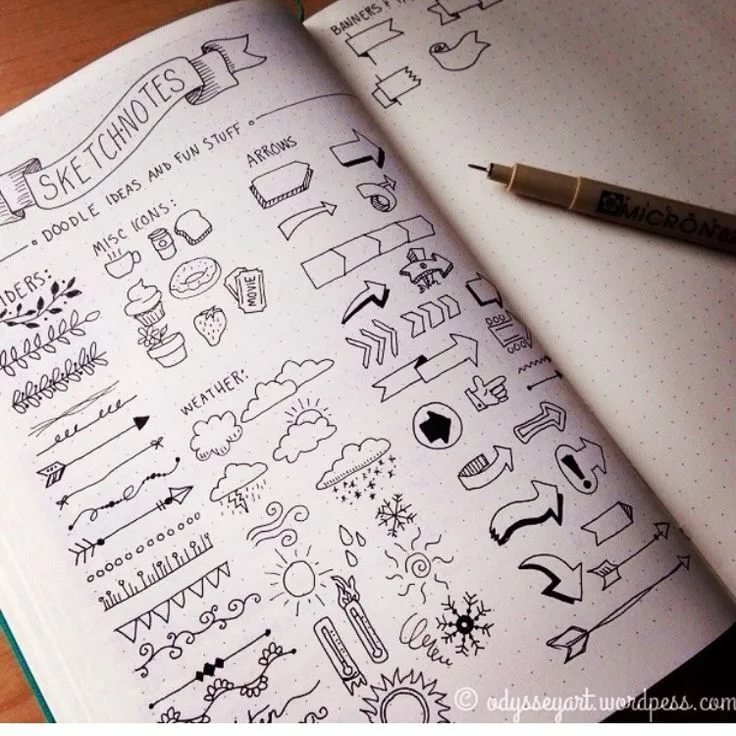 BANNERS &
SKETCH·NOTES
DOODLE IDEAS AND FUN STUFF
MISC ICONS:
ARROWS
MOVIE
WEATHER:
MICRON
© odysseyart.wordpess.com